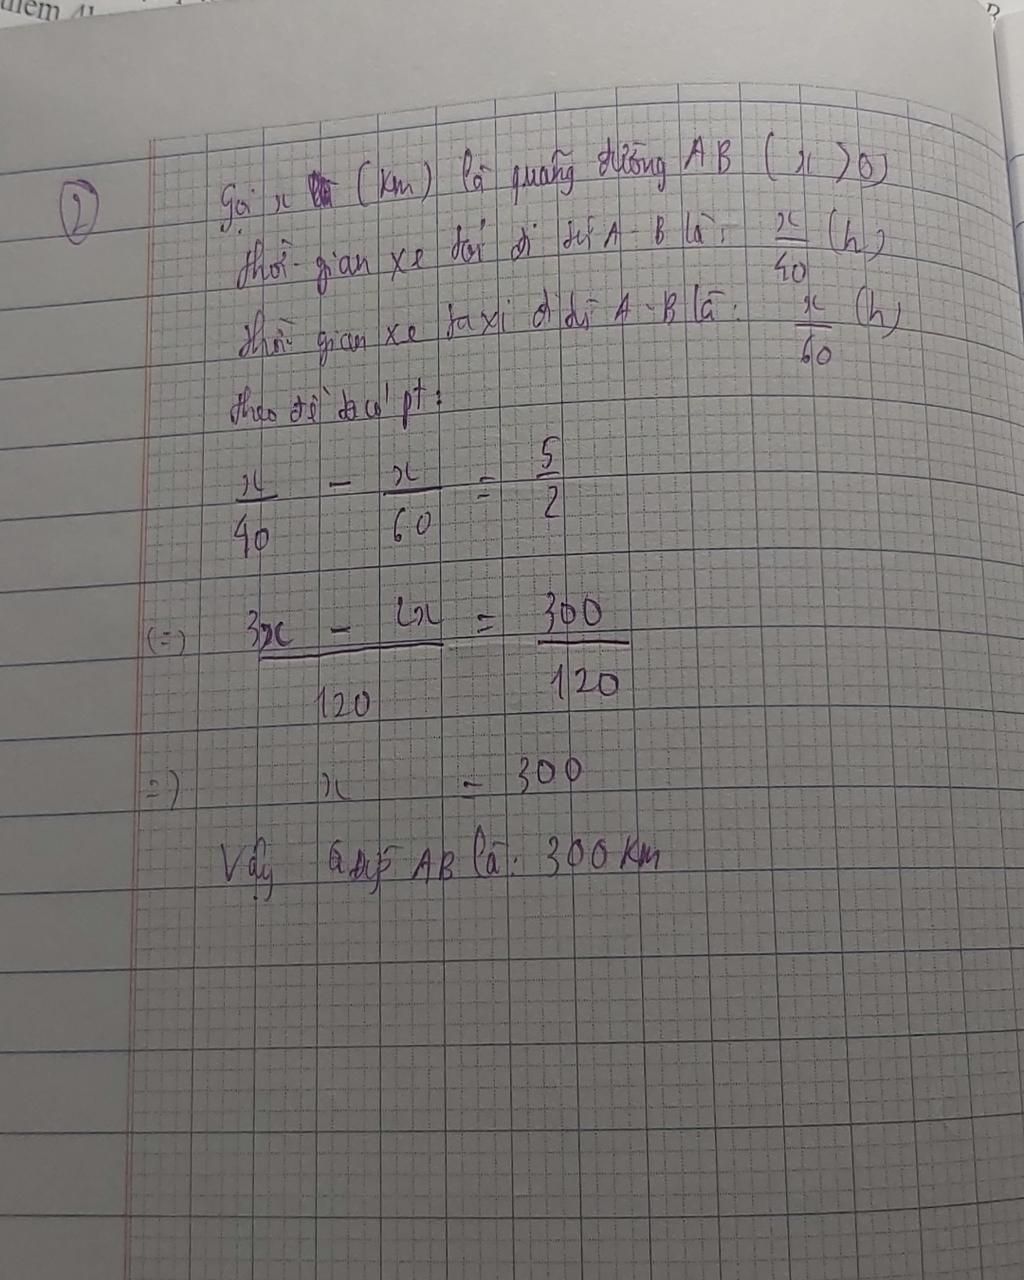 thêm
②
Gọi x (km) là quãng đường AB (x > 0)
thời gian xe tải đi từ A - B là: x/40 (h)
thời gian xe taxi đi từ A - B là: x/60 (h)
theo đề ta có pt:
x/40 - x/60 = 5/2
(=) (3x - 2x)/120 = 300/120
=) x = 300
Vậy AB là: 300 km